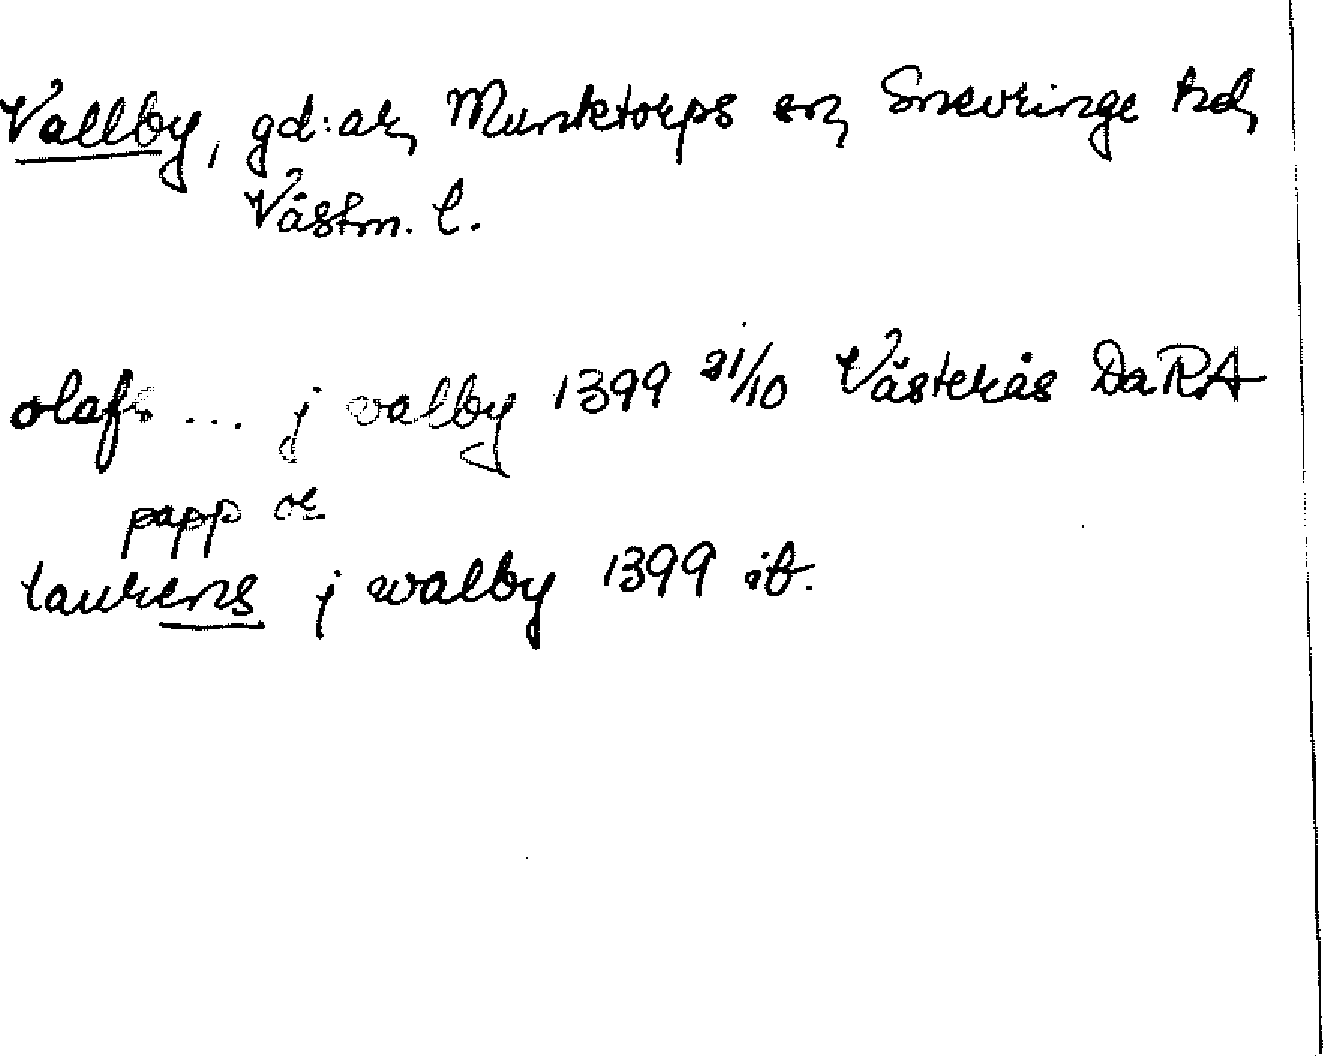 Vallby, gd:ar, Munktorps sn, Snevringe hd,
Västm. l.
olafs ... j walby 1399 21/10 Västerås DaRA
papp or
laurens j walby 1399 ib.